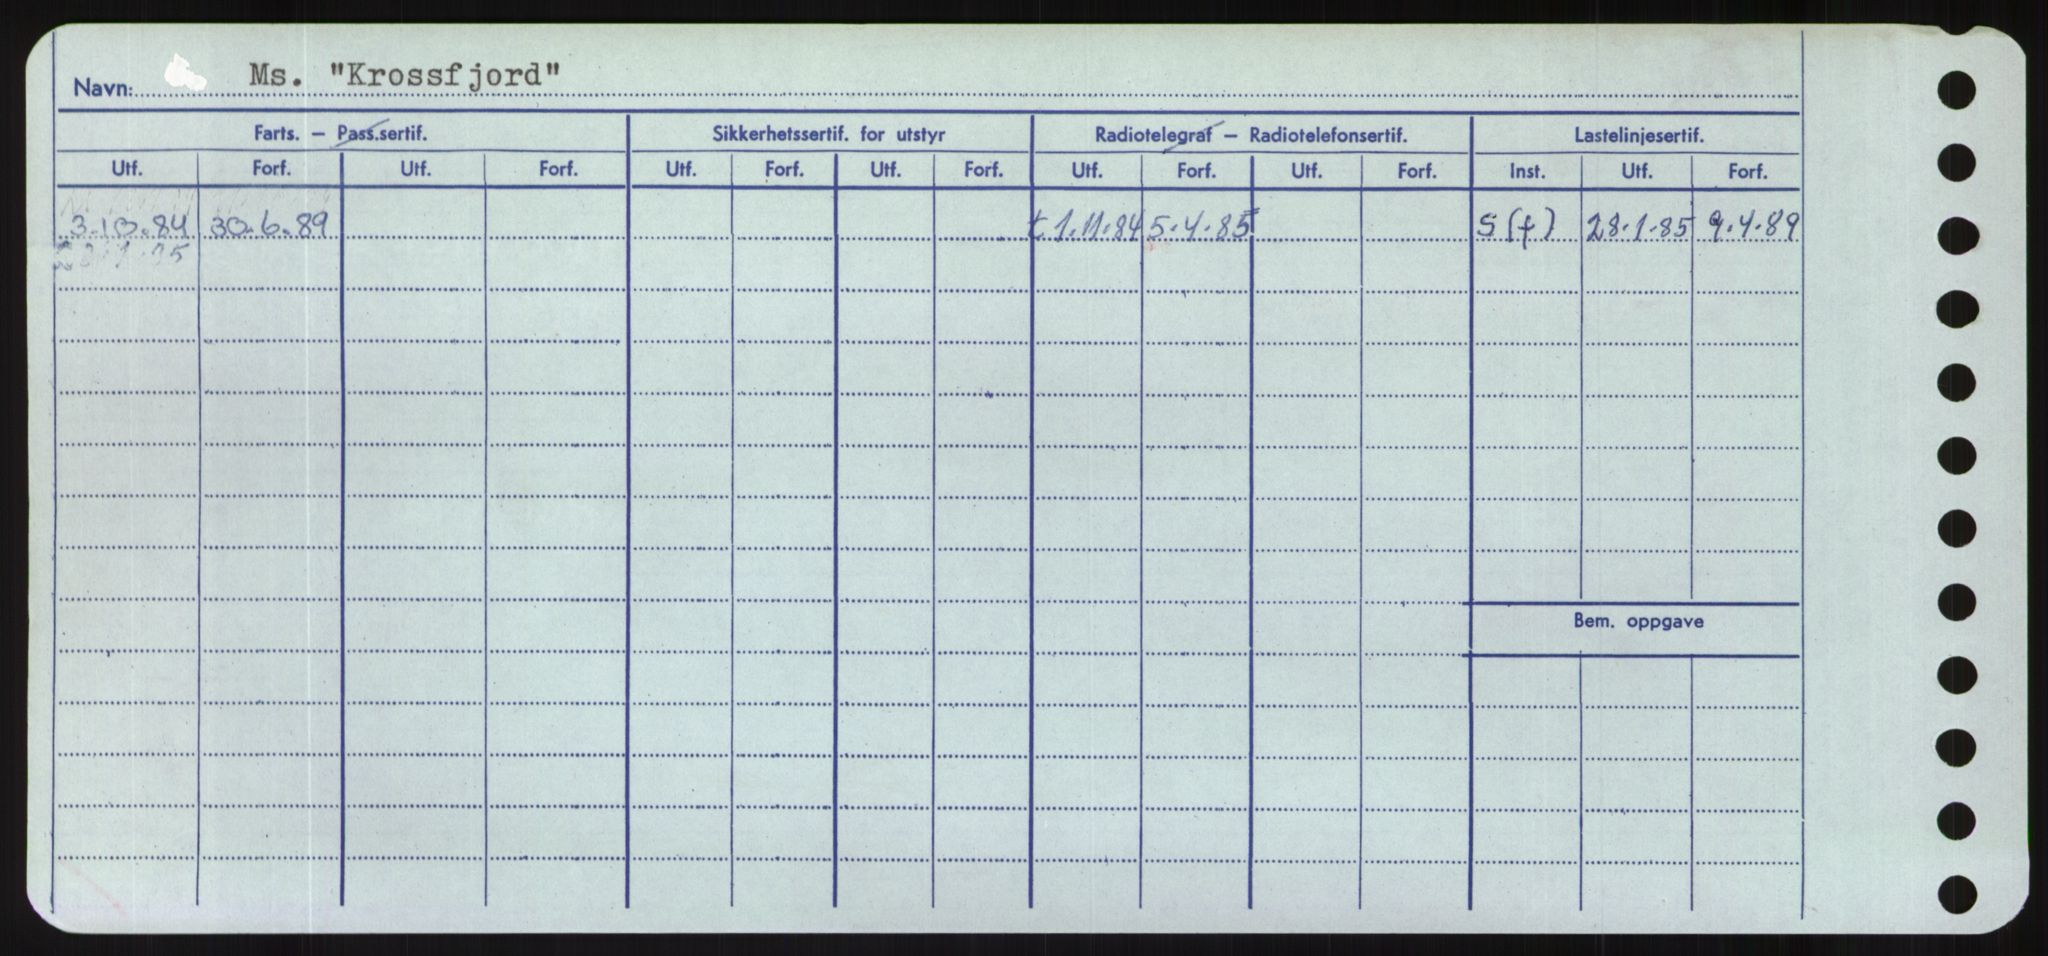 Navn: Ms. "Krossfjord"
Farts. – Pass.sertif. Sikkerhetssertif. for utstyr Radiotelegraf – Radiotelefonsertif. Lastelinjesertif.
Utf. Forf. Utf. Forf. Utf. Forf. Utf. Forf. Utf. Forf. Utf. Forf. Inst. Utf. Forf.
3.10.84 30.6.89 t 1.11.84 5.4.85 S(f) 28.1.85 9.4.89
Bem. oppgave